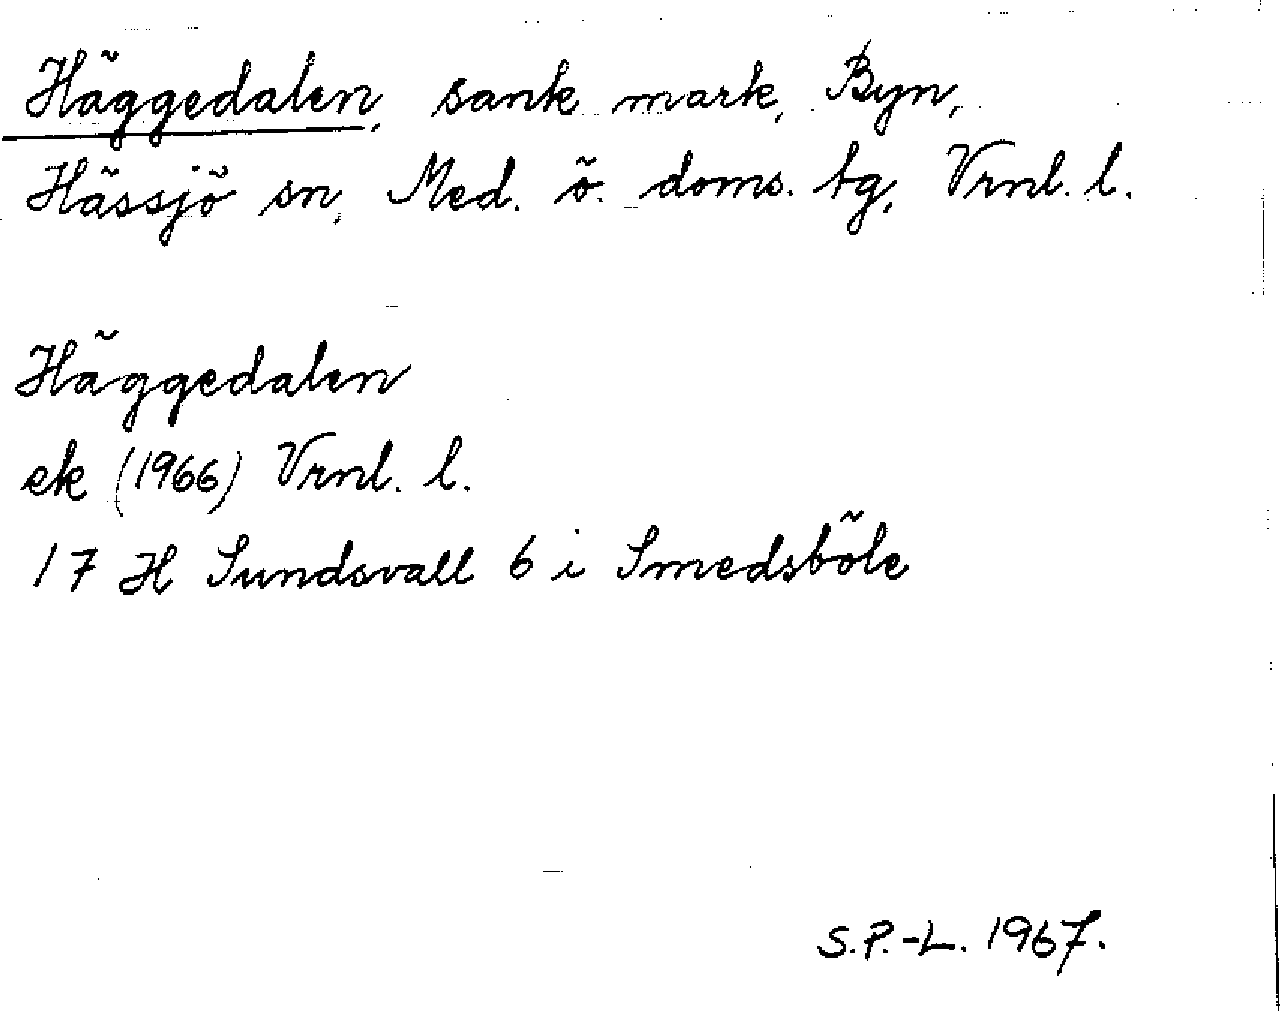 Häggedalen, sank mark, Byn,
Hässjö sn, Med. ö. doms. tg, Vrnl. l.
Häggedalen
ek (1966) Vrnl. l.
17 H Sundsvall 6 i Smedsböle
S.P.-L. 1967.